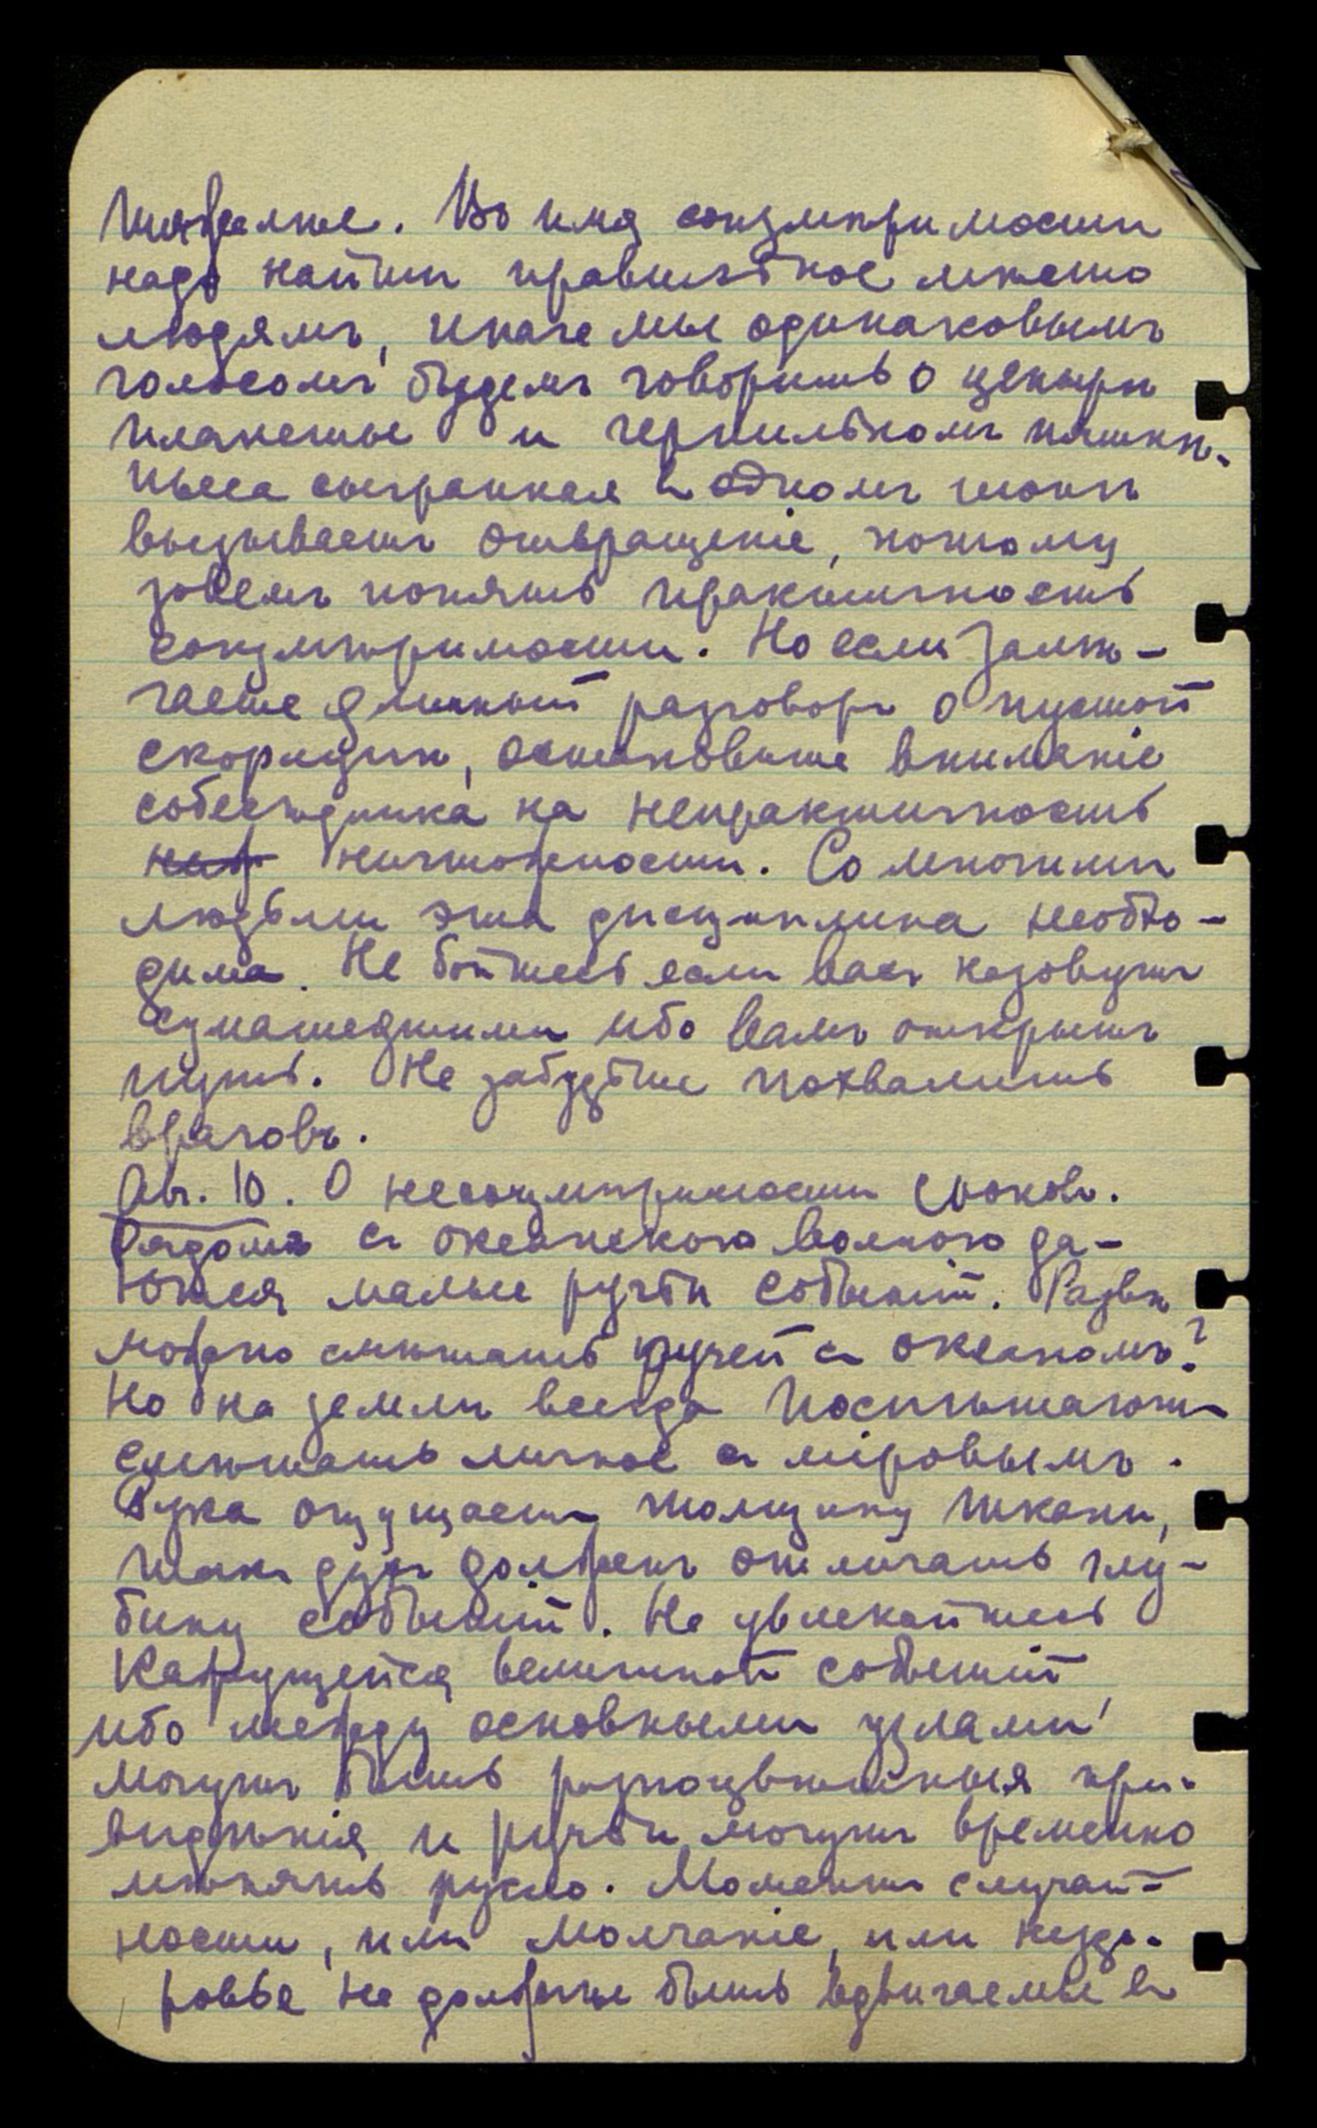 тяжелые. Во имя соизмѣримости
надо найти правильное мѣсто
людямъ, иначе мы одинаковымъ
голосомъ будемъ говорить о центрѣ
планеты и чернильномъ пятнѣ.
Пьеса сыгранная в одномъ тонѣ
вызываетъ отвращеніе, потому
зовемъ понять практичность
соизмѣримости. Но если замѣ-
чаете длинный разговоръ о пустой
скорлупѣ, остановите вниманіе
собесѣдника на непрактичность
ничтожности. Со многими
людьми эта дисциплина необхо-
дима. Не бойтесь если васъ назовутъ
сумашедшими ибо вамъ открытъ
путь. Не забудьте похвалить
враговъ.
Авг. 10. О несоизмѣримости сроковъ.
Рядомъ съ океанскою волною да-
ются малые ручьи событій. Развѣ
можно смѣшать ручей съ океаномъ?
Но на землѣ всегда поспѣшаютъ
смѣшать личное съ міровымъ.
Рука ощущаетъ толщину ткани,
такъ духъ долженъ отличать глу-
бину событій. Не увлекайтесь
кажущейся величиной событій
ибо между основными узлами
могутъ быть разноцвѣтныя при-
видѣнія и ручьи могутъ временно
мѣнять русло. Моментъ случай-
ности, или молчаніе, или нездо-
ровье не должны быть вдвигаемы въ